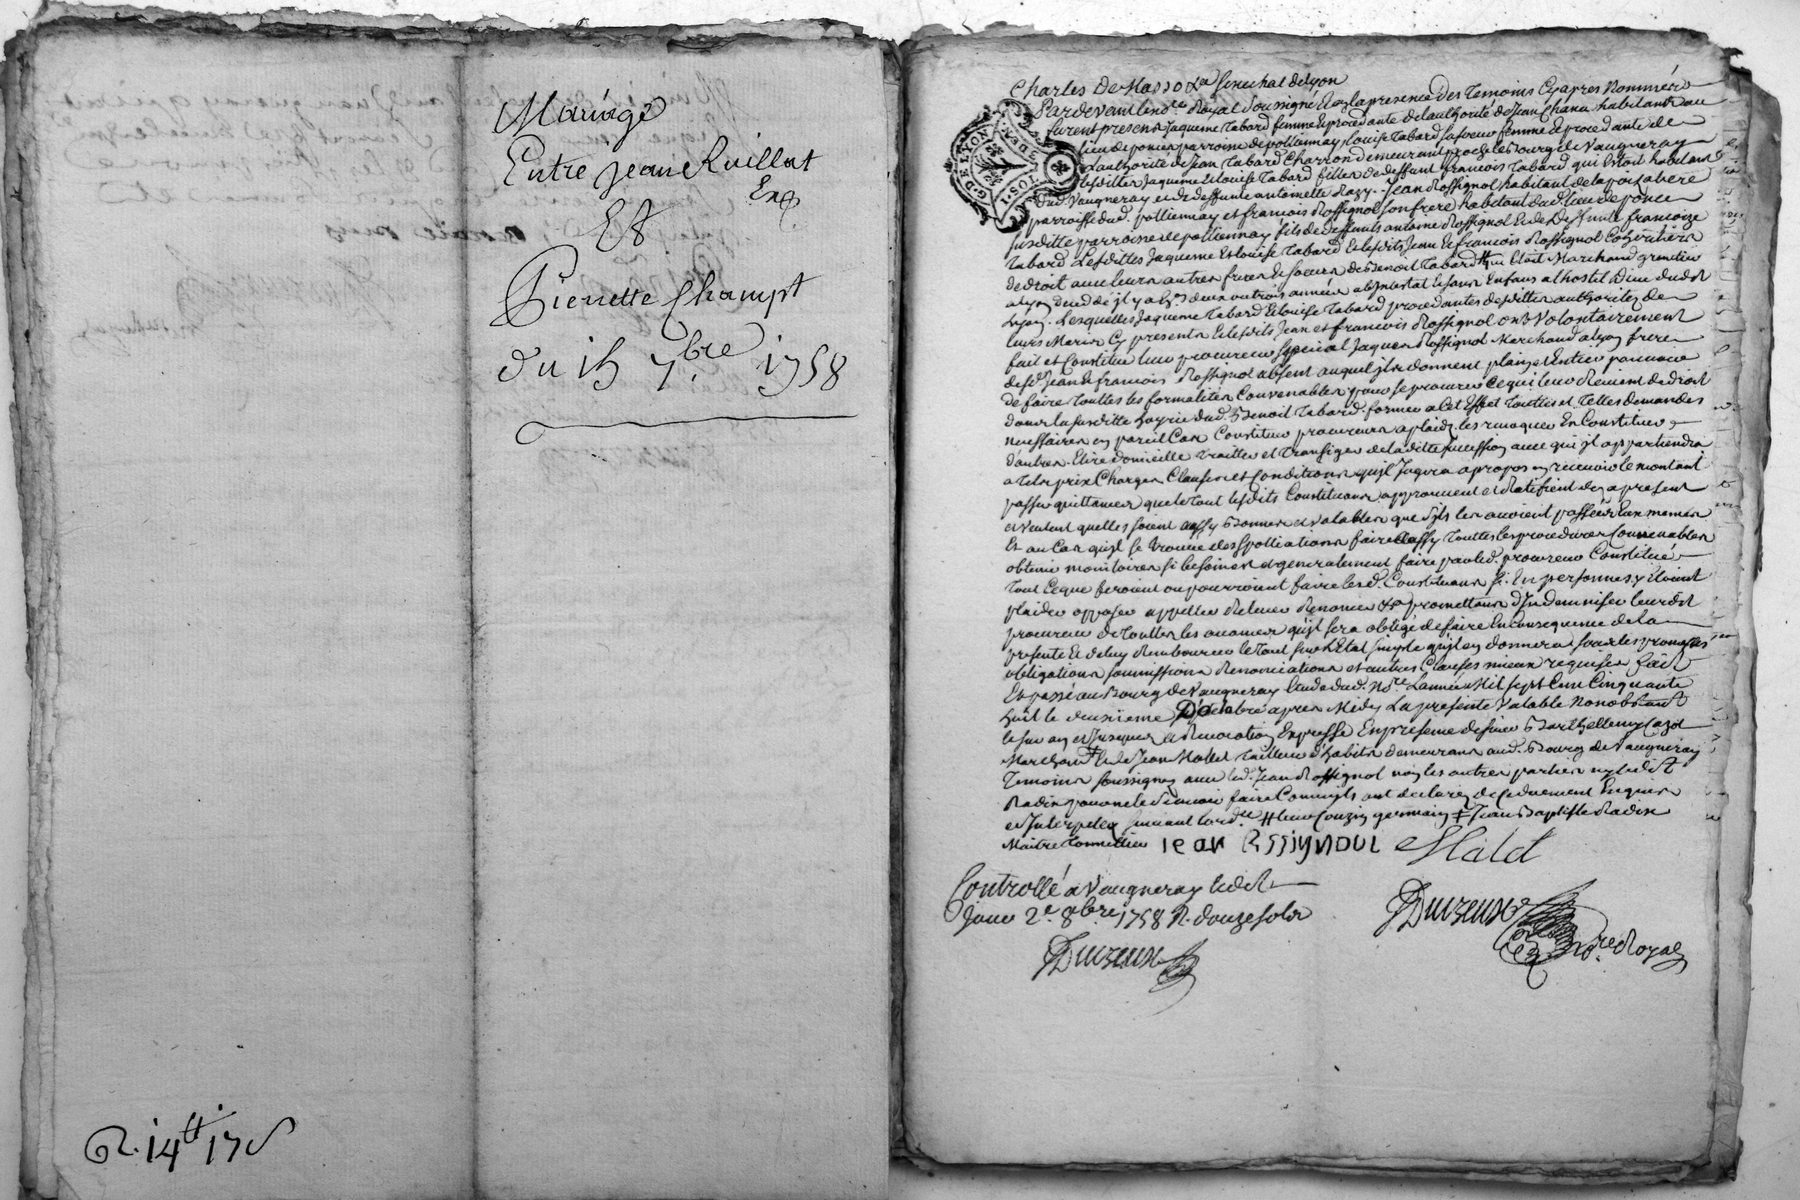 Mariage
Entre jean Ruillat
Exp.
Et
Pierrette Champt
du 15 7.bre 1758
R. 14tt 17 s
Charles De Masso &a Senechal de lyon
Pardevant le no.re Royal Soussigné et en la presence des Temoins Cyaprès Nommées
furent presens Jaqueme Tabard femme et procedante de lauthorité de Jean Chana habitants au
lieu de ponce parroisse de pollionnay, Louise Tabard sa soeur femme et procedante de
Lauthorité de Jean Tabard Charron demeurant proche le Bourg de Vaugneray
lesdittes Jaqueme et louise Tabard filles de deffunt francois Tabard qui Estoit habitant
dud. Vaugneray et de deffunte antoinette Razy. Jean Rossignol habitant de la
parroisse dud. pollionnay et francois Rossignol son frere habitant dud. lieu de ponce
susditte parroisse de pollionnay fils de deffunts antoine Rossignol et de Deffunte francoise
Tabard Lesdittes Jaqueme et louise Tabard et lesdits Jean et francois Rossignol Cohéritiers
de droit avec leurs autres freres et soeurs de Benoit Tabard # qui Etoit Marchand grenetier
a lyon decedé il y a deux ou trois années ab intestat et sans Enfans a lhostel Dieu dudit
Lyon. Lesquelles Jaqueme Tabard et louise Tabard procedantes desdittes authorités de
leurs Maris Cy presents et lesdits Jean et francois Rossignol ont Volontairement
fait et Constitué leur procureur special Jaques Rossignol Marchand a lyon frere
desd. Jean et francois Rossignol absent auquel ils donnent plain et Entier pouvoir
de faire touttes les formalités Convenables pour se procurer Ce qui leur Revient de droit
dans la susditte hoyrie dud. Benoit Tabard. former a Cet Effet Touttes et Telles demandes
necessaires en pareil Cas Constituer procureurs a plaids, les revoquer En Constituer
d'autres. Elire domicille Traitter et Transiger de laditte succession avec qui il appartiendra
a tels prix Charges Clauses et Conditions quil Jugera a propos en recevoir le montant
passer quittances que le tout lesdits Constituans approuvent et Ratifient des apresent
et Veulent quelles soient aussy Bonnes et Valables que s'ils les avoient passées Eux memes
Et au Cas quil se trouve des spolliations faire aussy touttes les procedures Convenables
obtenir monitoires si besoin est et generalement faire par led. procureur Constitué
tout Ce que feroient ou pourroient faire lesd. Constituans si En personnes y Etoient
plaider opposer appeller Relever Renoncer &a promettans d'Indemniser leurdit
procureur de Touttes les avances quil sera obligé de faire En Consequence de la
presente Et de luy Rembourcer le tout sur l'Etat simple quil en donnera sous les promesses
obligations soumissions Renonciations et autres Clauses mieux requises fait
Et passé au Bourg de Vaugneray Etude dud. No.re Lannée Mil sept Cent Cinquante
huit le deuxieme octobre apres Midy La presente Valable Nonobstant
le sur an et Jusques a Revocation Expresse En presence de sieur Barthellemy Cazot
Marchand et de Jean Malet Tailleur d'habits demeurans aud. Bourg de Vaugneray
Temoins soussignés avec led. Jean Rossignol non les autres parties ny ledit
Radix pour ne le scavoir faire Comm'ils ont declaré de Ce duement Enquis
et Interpellés suivant lord.ce # leur Couzin germain ‡ Jean Baptiste Radix
Maitre Tonnellier Jean Rssignoul Malet
Controllé a Vaugneray ledit
Jour 2.e 8bre 1758 R. douze sols
Duizeux
Duizeux
No.re Royal
G DE LYON